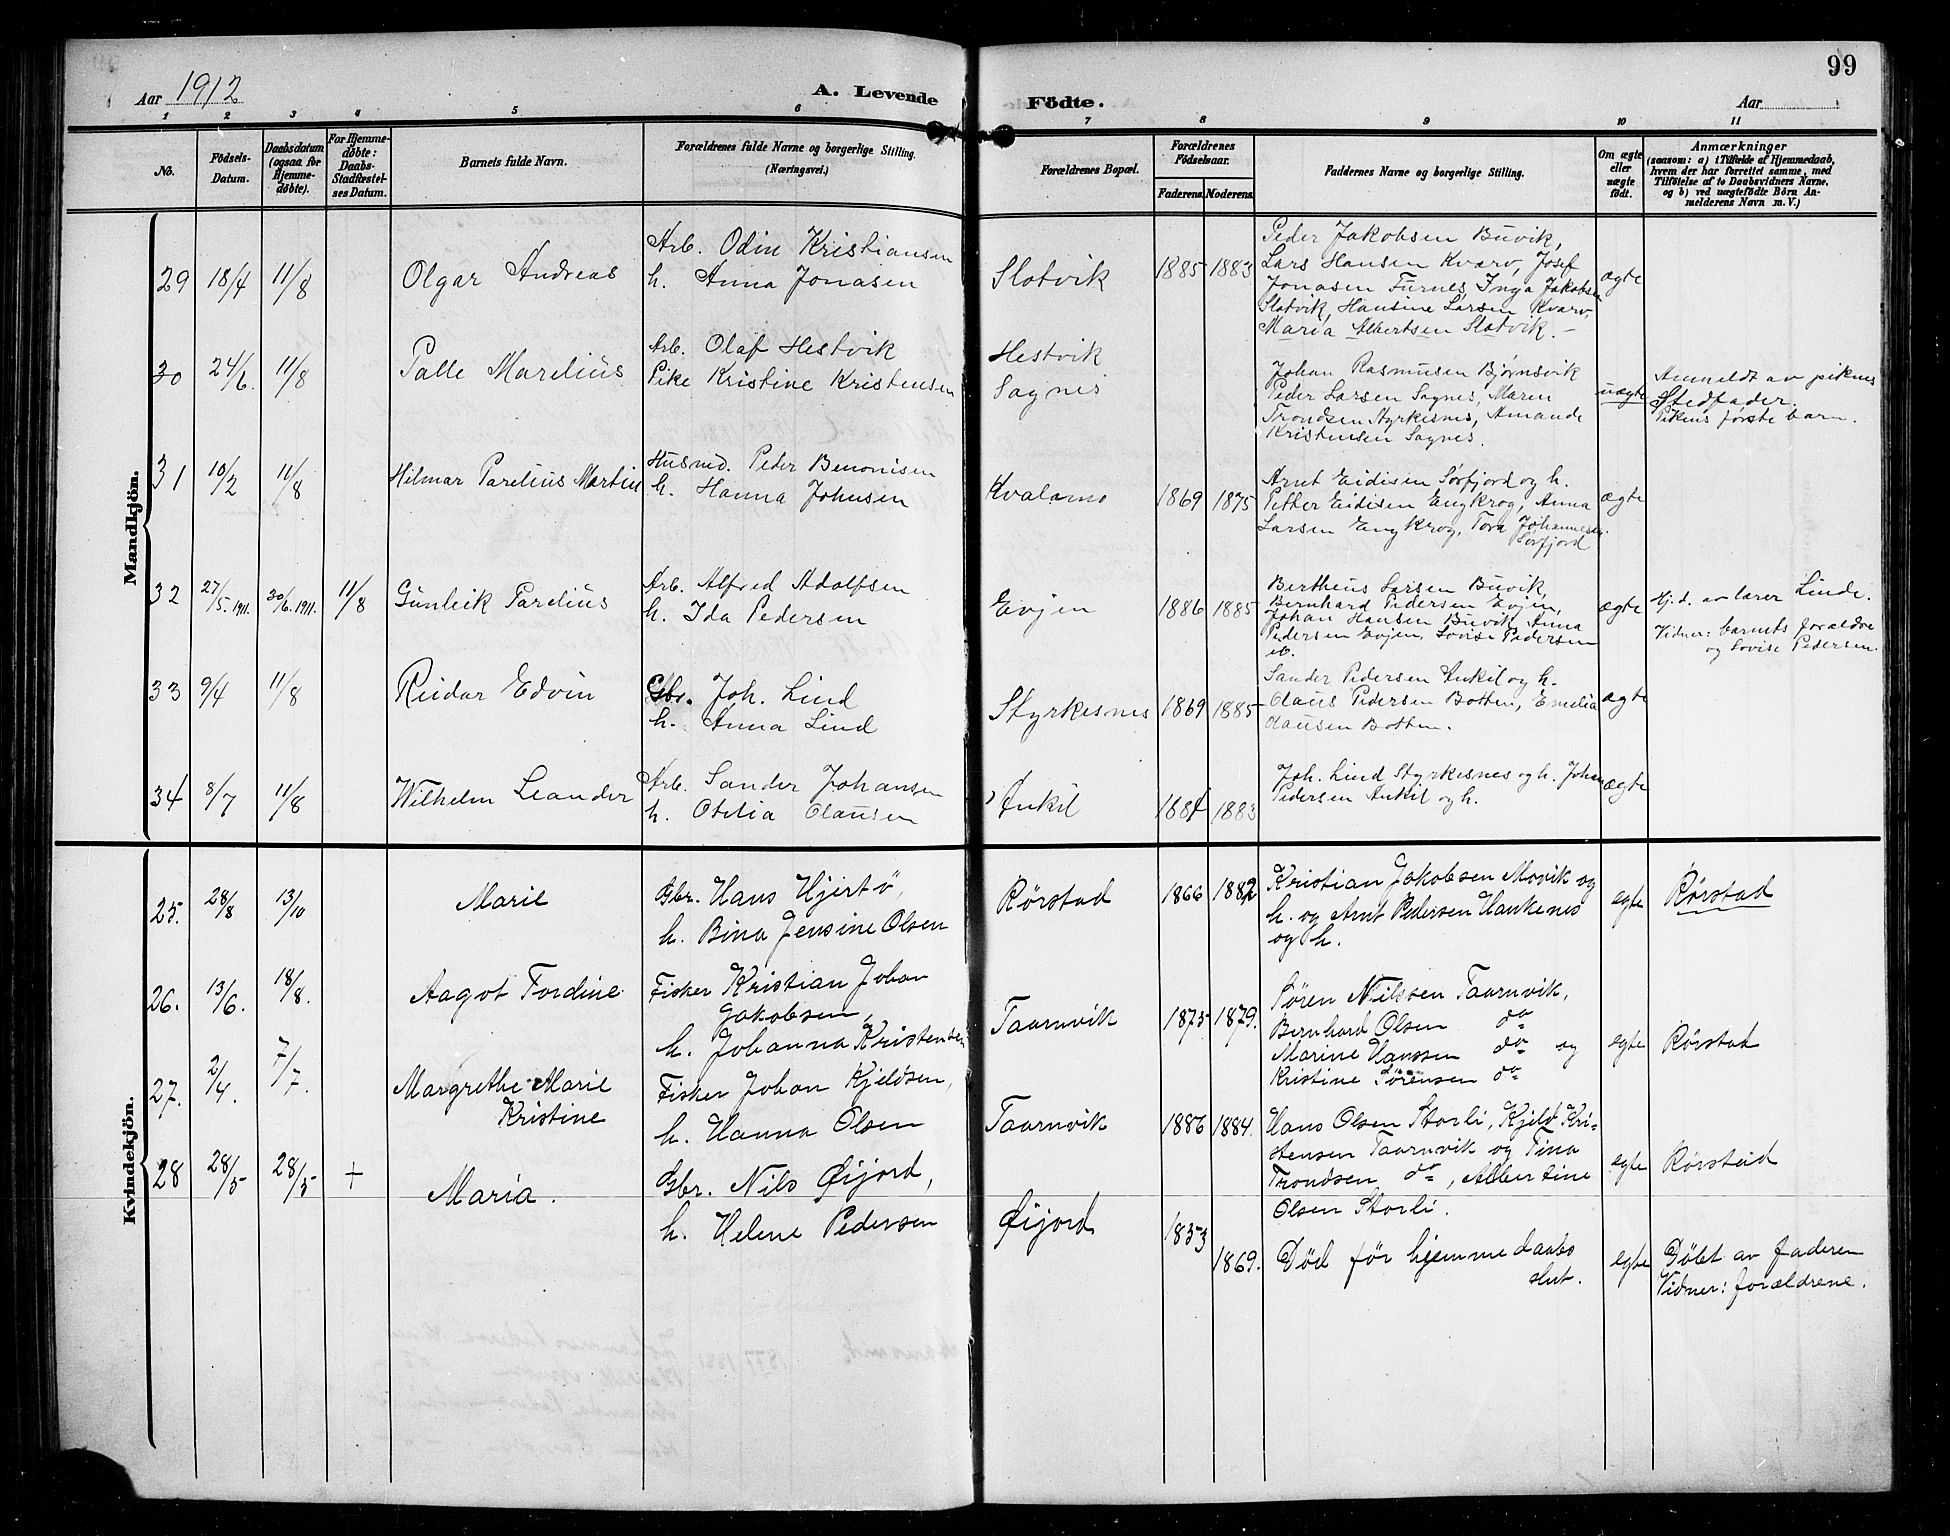 99
Aar 1912
A. Levende Födte.
Aar
1 2 3 4 5 6 7 8 9 10 11
No.
Födsels-
Datum.
Daabsdatum
(ogsaa for
Hjemme-
döbte).
For Hjemme-
döbte:
Daabs-
Stadfæstel-
ses Datum.
Barnets fulde Navn.
Forældrenes fulde Navne og borgerlige Stilling.
(Næringsvei.)
Forældrenes Bopæl.
Forældrenes
Födselsaar.
Faderens. Moderens.
Faddernes Navne og borgerlige Stilling.
Om ægte
eller
uægte
födt.
Anmærkninger
(saasom: a) i Tilfælde af Hjemmedaab,
hvem der har forrettet samme, med
Tilföielse af to Daabsvidners Navne,
og b) ved uægtefödte Börn An-
melderens Navn m. V.)
Mandkjön.
29 18/4 11/8 Olgar Andreas
Arb. Odin Kristiansen
h. Anna Jonasen
Slotvik 1885 1883
Peder Jakobsen Buvik,
Lars Hansen Kvarv, Josef
Jonasen Furnes, Inga Jakobsen
Slotvik, Hansine Larsen Kvarv,
Maria Albertsen Slotvik. –
ægte
30 24/6. 11/8 Palle Marelius
Arb. Olaf Hestvik
Pike Kristine Kristensen
Hestvik
Sagnes
Johan Rasmusen Bjørnsvik
Peder Larsen Sagnes, Maren
Trondsen Styrkesnes, Amande
Kristensen Sagnes.
uægte
Anmeldt av pikens
Stedfader.
Pikens første barn.
31 10/2 11/8 Hilmar Parelius Martin
Husmd. Peder Benonisen
h. Hanna Johnsen
Kvalamo 1869 1875
Arnt Eidisen Sørfjord og h.
Petter Eidisen Engkrog, Anna
Larsen Engkrog, Tora Johannesen.
Sørfjord
ægte
32 27/5. 1911. 30/6. 1911. 11/8 Gunleik Parelius
Arb. Alfred Adolfsen
h. Ida Pedersen
Evjen 1886 1885
Bertheus Larsen Buvik,
Bernhard Pedersen Evjen,
Johan Hansen Buvik, Anna
Pedersen Evjen, Lovise Pedersen
ib.
ægte
Hj. d. av lærer Linde.
Vidner: barnets forældre
og Lovise Pedersen.
33 9/4 11/8 Reidar Edvin
Gbr. Joh. Lind
h. Anna Lind
Styrkesnes 1869 1885
Sander Pedersen Ankil og h.
Claus Pedersen Botten, Emelia
Clausen Botten.
ægte
34 8/7 11/8 Wilhelm Leander
Arb. Sander Johansen
h. Otelia Clausen
Ankil 1884 1883
Joh. Lind Styrkesnes og h. Johan
Pedersen Ankil og h.
ægte
Kvindekjön.
25. 28/8 13/10 Marie
Gbr. Hans Hjertø,
h. Bina Jensine Olsen
Rørstad 1866 1882
Kristian Jakobsen Movik og
h. og Arnt Pedersen Haukenes
og h.
egte Rørstad
26. 13/6. 18/8. Aagot Tordine
Fisker Kristian Johan
Jakobsen,
h. Johanna Kristensen
Taarnvik 1875 1879.
Søren Nilssen Taarnvik,
Bernhard Olsen do
Marine Hanssen do og
Kristine Sørensen do
egte Rørstad
27. 2/4. 7/7. Margrethe Marie
Kristine
Fisker Johan Kjeldsen,
h. Hanna Olsen
Taarnvik 1886 1884.
Hans Olsen Storli, Kjeld Kri-
stensen Taarnvik og Tina
Trondsen do, Albertine
Olsen Storli.
egte Rørstad
28 28/5 28/5 + Maria.
Gbr. Nils Øijord,
h. Helene Pedersen
Øijord 1853 1869.
Død før hjemmedaabs
slut.
egte
Døbt av faderen
Vidner: forældrene.